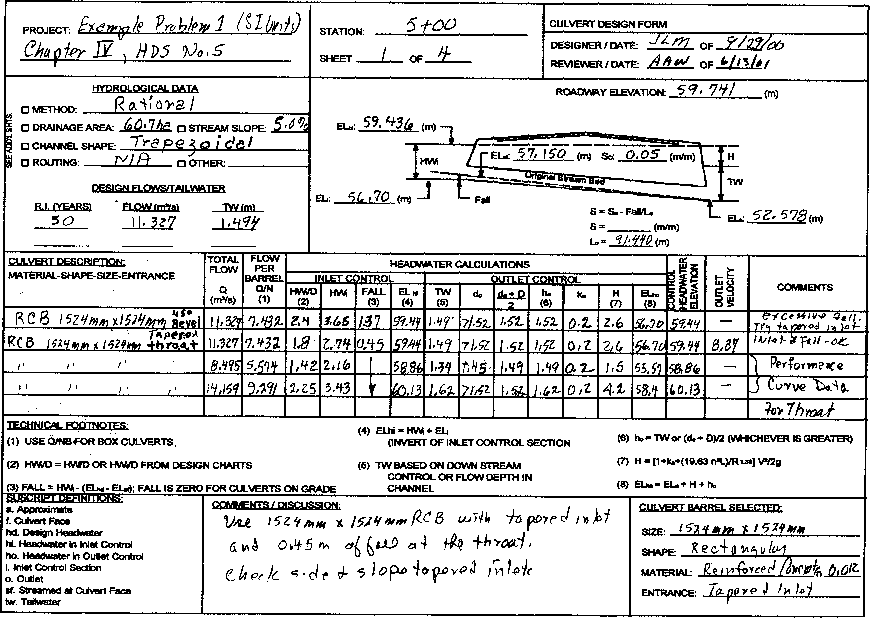 PROJECT: Example Problem 1 (SI Units)
Chapter IV, HDS No. 5
STATION: 5+00
SHEET 1 OF 4
CULVERT DESIGN FORM
DESIGNER / DATE: JLM OF 9/29/00
REVIEWER / DATE: AAW OF 6/13/01
HYDROLOGICAL DATA
METHOD: Rational
DRAINAGE AREA: 60.7ha STREAM SLOPE: 5.0%
CHANNEL SHAPE: Trapezoidal
ROUTING: N/A OTHER:
SEE ADD'L SHTS.
DESIGN FLOWS/TAILWATER
R.I. (YEARS) FLOW (m³/s) TW (m)
50 11.327 1.494
ROADWAY ELEVATION: 59.741 (m)
59.436 (m)
57.150 (m) So: 0.05 (m/m)
HWi
H
TW
Original Stream Bed
56.70 (m)
Fall
S = So - Fall/La
S = (m/m)
La = 91.440 (m)
52.578 (m)
CULVERT DESCRIPTION:
MATERIAL-SHAPE-SIZE-ENTRANCE
TOTAL FLOW Q (m³/s)
FLOW PER BARREL Q/N (1)
HEADWATER CALCULATIONS
INLET CONTROL OUTLET CONTROL
HW/D (2) HWi FALL (3) (4) TW (5) dc dc + D / 2 ho (6) ke H (7) ELho (8)
CONTROL HEADWATER ELEVATION
OUTLET VELOCITY
COMMENTS
RCB 1524mm x 1524mm 45° Bevel 11.327 7.432 2.4 3.65 1.37 59.44 1.49 71.52 1.52 1.52 0.2 2.6 56.70 59.44 — Excessive fall. Try tapered inlet
RCB 1524mm x 1524mm Tapered throat 11.327 7.432 1.8 2.74 0.45 59.44 1.49 71.52 1.52 1.52 0.2 2.6 56.70 59.44 Inlet & Fall - OK
" " " 8.495 5.574 1.42 2.16 58.86 1.34 1.49 1.49 0.2 1.5 58.86 — Performance
" " " 14.159 9.291 2.25 3.43 60.13 1.62 71.52 1.52 1.62 0.2 4.2 58.4 60.13 — Curve Data
For Throat
TECHNICAL FOOTNOTES:
(1) USE Q/NB FOR BOX CULVERTS
(2) HW/D = HW/D OR HW/D FROM DESIGN CHARTS
(3) FALL = HWi - (ELhd - ELsf); FALL IS ZERO FOR CULVERTS ON GRADE
(4) ELhi = HWi + ELi
(INVERT OF INLET CONTROL SECTION
(5) TW BASED ON DOWN STREAM
CONTROL OR FLOW DEPTH IN
CHANNEL
(6) ho = TW or (dc + D)/2 (WHICHEVER IS GREATER)
(7) H = [1+ke+(19.63 n²L)/R 1.33] V²/2g
(8) ELho = ELo + H + ho
SUSCRIPT DEFINITIONS:
a. Approximate
f. Culvert Face
hd. Design Headwater
hi. Headwater in Inlet Control
ho. Headwater in Outlet Control
i. Inlet Control Section
o. Outlet
sf. Streamed at Culvert Face
tw. Tailwater
COMMENTS / DISCUSSION:
Use 1524mm x 1524mm RCB with tapered inlet
and 0.45m of fall at the throat.
Check side & slope tapered inlets
CULVERT BARREL SELECTED:
SIZE: 1524mm x 1524mm
SHAPE: Rectangular
MATERIAL: Reinforced Concrete 0.012
ENTRANCE: Tapered Inlet